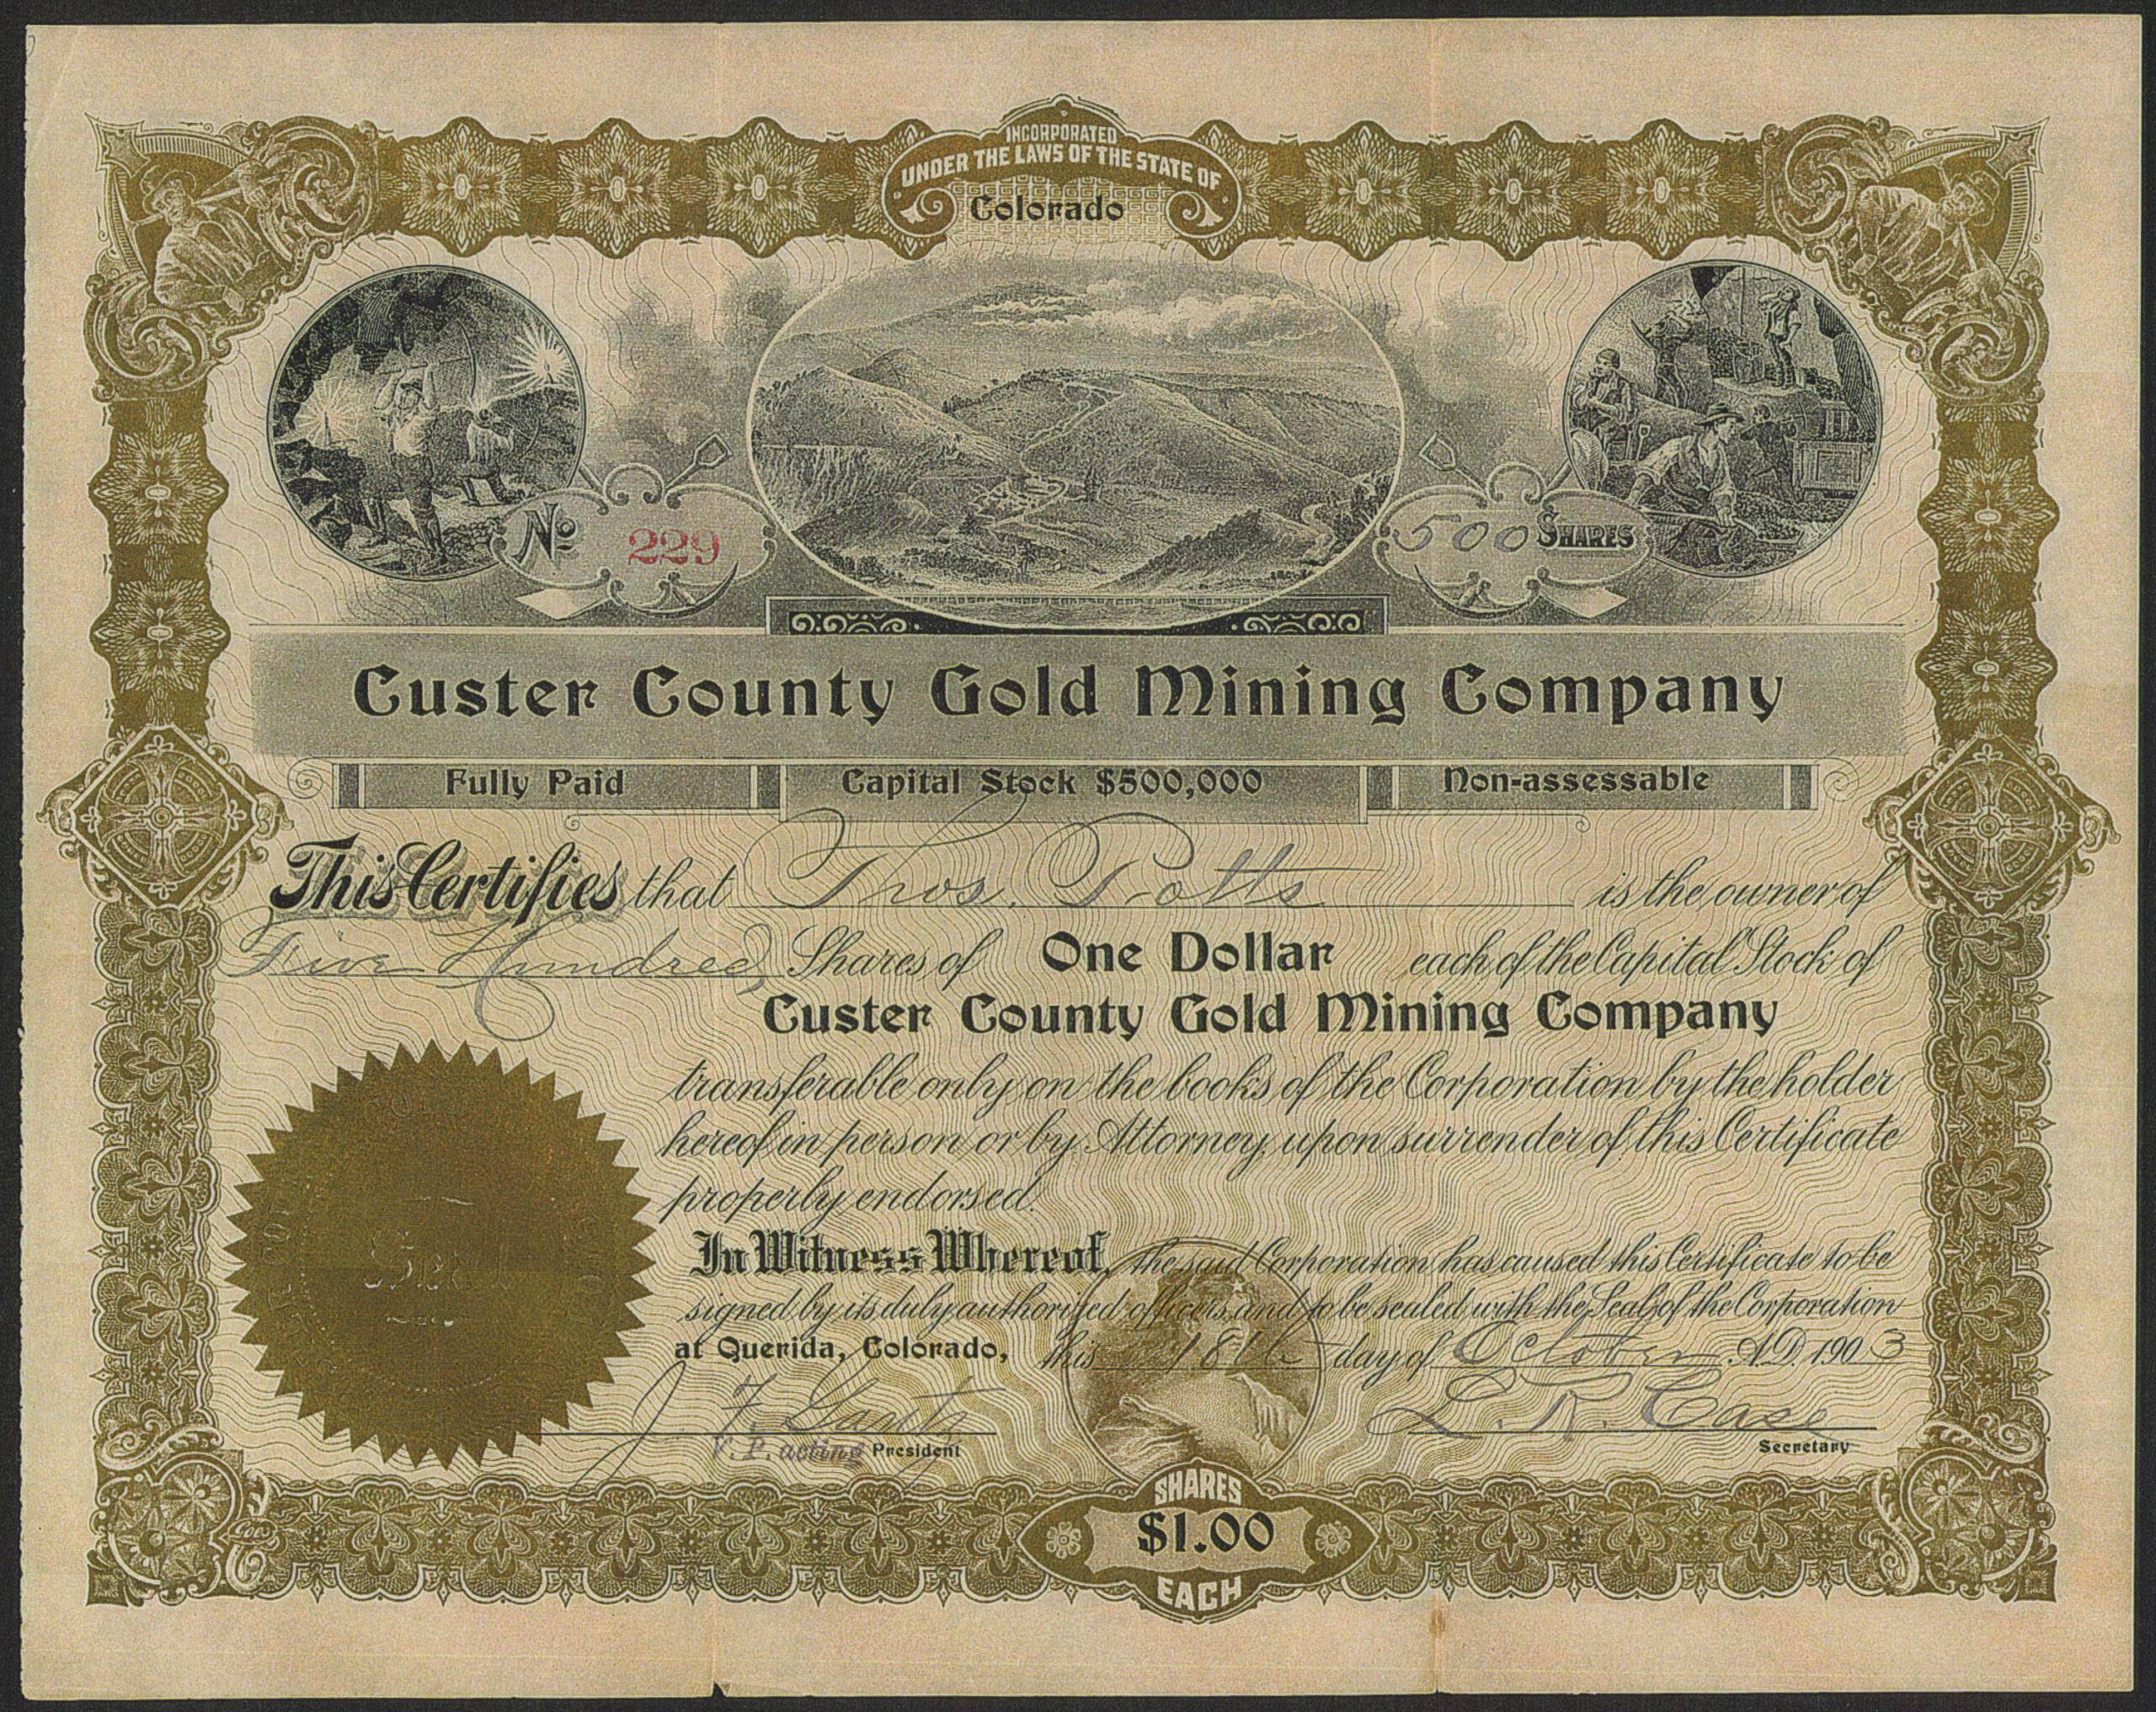 INCORPORATED
UNDER THE LAWS OF THE STATE OF
Colorado
No 229
500 SHARES
Custer County Gold Mining Company
Fully Paid Capital Stock $500,000 Non-assessable
This Certifies that Thos. Potts is the owner of
Five Hundred Shares of One Dollar each of the Capital Stock of
Custer County Gold Mining Company
transferable only on the books of the Corporation by the holder
hereof in person or by Attorney, upon surrender of this Certificate
properly endorsed.
In Witness Whereof, the said Corporation has caused this Certificate to be
signed by its duly authorized officers, and to be sealed with the Seal of the Corporation
at Querida, Colorado, this 18th day of October A.D. 1903
J. F. Gantz L. R. Case
V. P. acting President Secretary
SHARES
$1.00
EACH
Goes